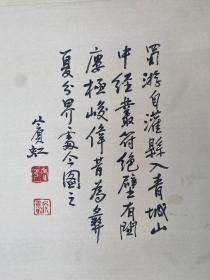 蜀游自灌縣入青城山
中經叢箐絕壁有關
廔極峻偉昔為彝
夏分界處今圖之
賓虹